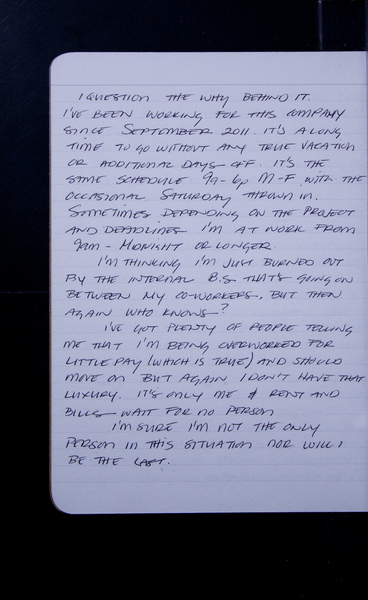 I QUESTION THE WHY BEHIND IT.
I'VE BEEN WORKING FOR THIS COMPANY
SINCE SEPTEMBER 2011. IT'S A LONG
TIME TO GO WITHOUT ANY TRUE VACATION
OR ADDITIONAL DAYS OFF. IT'S THE
SAME SCHEDULE 9A-6P M-F WITH THE
OCCASIONAL SATURDAY THROWN IN.
SOMETIMES DEPENDING ON THE PROJECT
AND DEADLINES I'M AT WORK FROM
9AM - MIDNIGHT OR LONGER.
I'M THINKING I'M JUST BURNED OUT
BY THE INTERNAL B.S. THAT'S GOING ON
BETWEEN MY CO-WORKERS. BUT THEN
AGAIN WHO KNOWS?
I'VE GOT PLENTY OF PEOPLE TELLING
ME THAT I'M BEING OVERWORKED FOR
LITTLE PAY (WHICH IS TRUE) AND SHOULD
MOVE ON BUT AGAIN, I DON'T HAVE THAT
LUXURY. IT'S ONLY ME & RENT AND
BILLS WAIT FOR NO PERSON
I'M SURE I'M NOT THE ONLY
PERSON IN THIS SITUATION NOR WILL I
BE THE LAST.